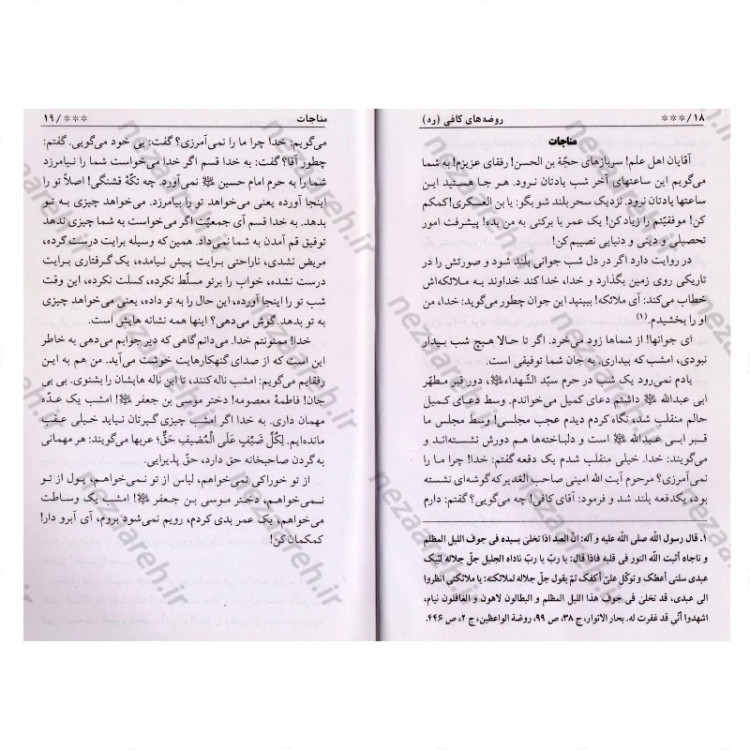 ۱۸/*** روضه‌های کافی (ره)
مناجات
آقایان اهل علم! سربازهای حجّة بن الحسن! رفقای عزیزم! به شما
می‌گویم این ساعتهای آخر شب یادتان نرود. هر جا هستید این
ساعتها یادتان نرود. نزدیک سحر بلند شو بگو: یا بن العسکری! کمکم
کن! موفقیّتم را زیاد کن! یک عمر با برکتی به من بده! پیشرفت امور
تحصیلی و دینی و دنیایی نصیبم کن!
در روایت دارد اگر در دل شب جوانی بلند شود و صورتش را در
تاریکی روی زمین بگذارد و خدا، خدا کند خداوند به ملائکه‌اش
خطاب می‌کند: آی ملائکه! ببینید این جوان چطور می‌گوید: خدا، من
او را بخشیدم.(۱)
ای جوانها! از شماها زود می‌خرد. اگر تا حالا هیچ شب بیدار
نبودی، امشب که بیداری. به جان شما توفیقی است.
یادم نمی‌رود یک شب در حرم سیّد الشّهداء ﷷ، دور قبر مطهّر
ابی عبدالله داشتم دعای کمیل می‌خواندم. وسط دعای کمیل
حالم منقلب شد، نگاه کردم دیدم عجب مجلسی! وسط مجلس ما
قبر ابی عبدالله است و دلباخته‌ها هم دورش نشسته‌اند و
می‌گویند: خدا! خیلی منقلب شدم یک دفعه گفتم: خدا! چرا ما را
نمی‌آمرزی؟ مرحوم آیت الله امینی صاحب الغدیر که گوشه‌ای نشسته
بود، یکدفعه بلند شد و فرمود: آقای کافی! چه می‌گویی؟ گفتم: دارم
۱. قال رسول الله صلی الله علیه و آله: انّ العبد اذا تخلی بسیده فی جوف اللیل المظلم
و ناجاه أثبت الله النور فی قلبه فاذا قال: یا ربّ یا ربّ ناداه الجلیل جلّ جلاله لبّیک
عبدی سلنی أعطک و توکّل علیّ أکفک ثمّ یقول جلّ جلاله لملائکته: یا ملائکتی انظروا
الی عبدی، قد تخلی فی جوف هذا اللیل المظلم و البطالون لاهون و الغافلون نیام،
اشهدوا أنّی قد غفرت له. بحار الأنوار، ج ۳۸، ص ۹۹، روضة الواعظین، ج ۲، ص ۴۴۶.
مناجات ***/۱۹
می‌گویم: خدا چرا ما را نمی‌آمرزی؟ گفت: بی خود می‌گویی. گفتم:
چطور آقا؟ گفت: به خدا قسم اگر خدا می‌خواست شما را نیامرزد
شما را به حرم امام حسین نمی‌آورد. چه تکّهٔ قشنگی! اصلاً تو را
اینجا آورده یعنی می‌خواهد تو را بیامرزد. می‌خواهد چیزی به تو
بدهد. به خدا قسم آی جمعیّت اگر می‌خواست به شما چیزی ندهد
توفیق قم آمدن به شما نمی‌داد. همین که وسیله برایت درست کرده،
مریض نشدی، ناراحتی برایت پیش نیامده، یک گرفتاری برایت
درست نشده، خواب را برتو مسلّط نکرده، کسلت نکرده، این وقت
شب تو را اینجا آورده، این حال را به تو داده، یعنی می‌خواهد چیزی
به تو بدهد. گوش می‌دهی؟ اینها همه نشانه هایش است.
خدا! ممنونتم خدا. می‌دانم‌گاهی که دیر جوابم می‌دهی به خاطر
این است که از صدای گنهکارهایت خوشت می‌آید. من هم به این
رفقایم می‌گویم: امشب ناله کنند، تا این ناله هایشان را بشنوی. بی بی
جان! فاطمهٔ معصومه! دختر موسی بن جعفر! امشب یک عدّه
مهمان داری. به خدا اگر امشب چیزی گیرتان نیاید خیلی عقب
مانده‌ایم. لِکُلِّ ضَیْفٍ عَلَی الْمُضیفِ حَقٌّ؛ عربها می‌گویند: هر مهمانی
به گردن صاحبخانه حق دارد، حق پذیرایی.
از تو خوراکی نمی‌خواهم، لباس از تو نمی‌خواهم، پول از تو
نمی‌خواهم، دختر موسی بن جعفر! امشب یک وساطت
می‌خواهم، یک عمر بدی کردم، رویم نمی‌شود بروم، آی آبرو دار!
کمکمان کن!
nezaareh.ir